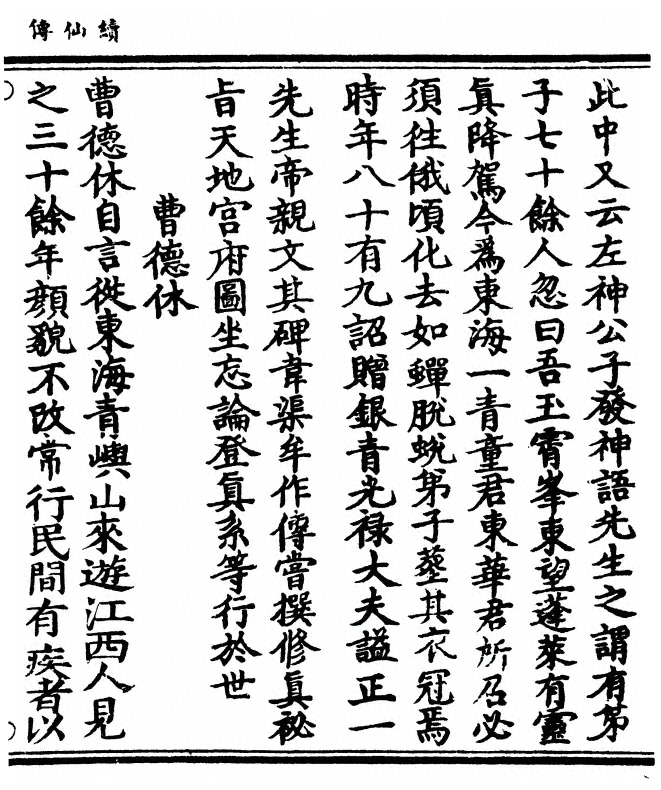 續仙傳
此中又云左神公子發神語先生之謂有苐
子七十餘人忽曰吾玉霄峯東望蓬萊有靈
眞降駕今爲東海一青童君東華君所召必
須徃俄頃化去如蟬脫蛻苐子塟其衣冠焉
時年八十有九詔贈銀青光禄大夫謚正一
先生帝親文其碑韋渠牟作傳嘗撰修眞秘
旨天地宫府圖坐忘論登眞系等行於世
曹德休
曹德休自言從東海青嶼山來遊江西人見
之三十餘年顔貌不改常行民間有疾者以